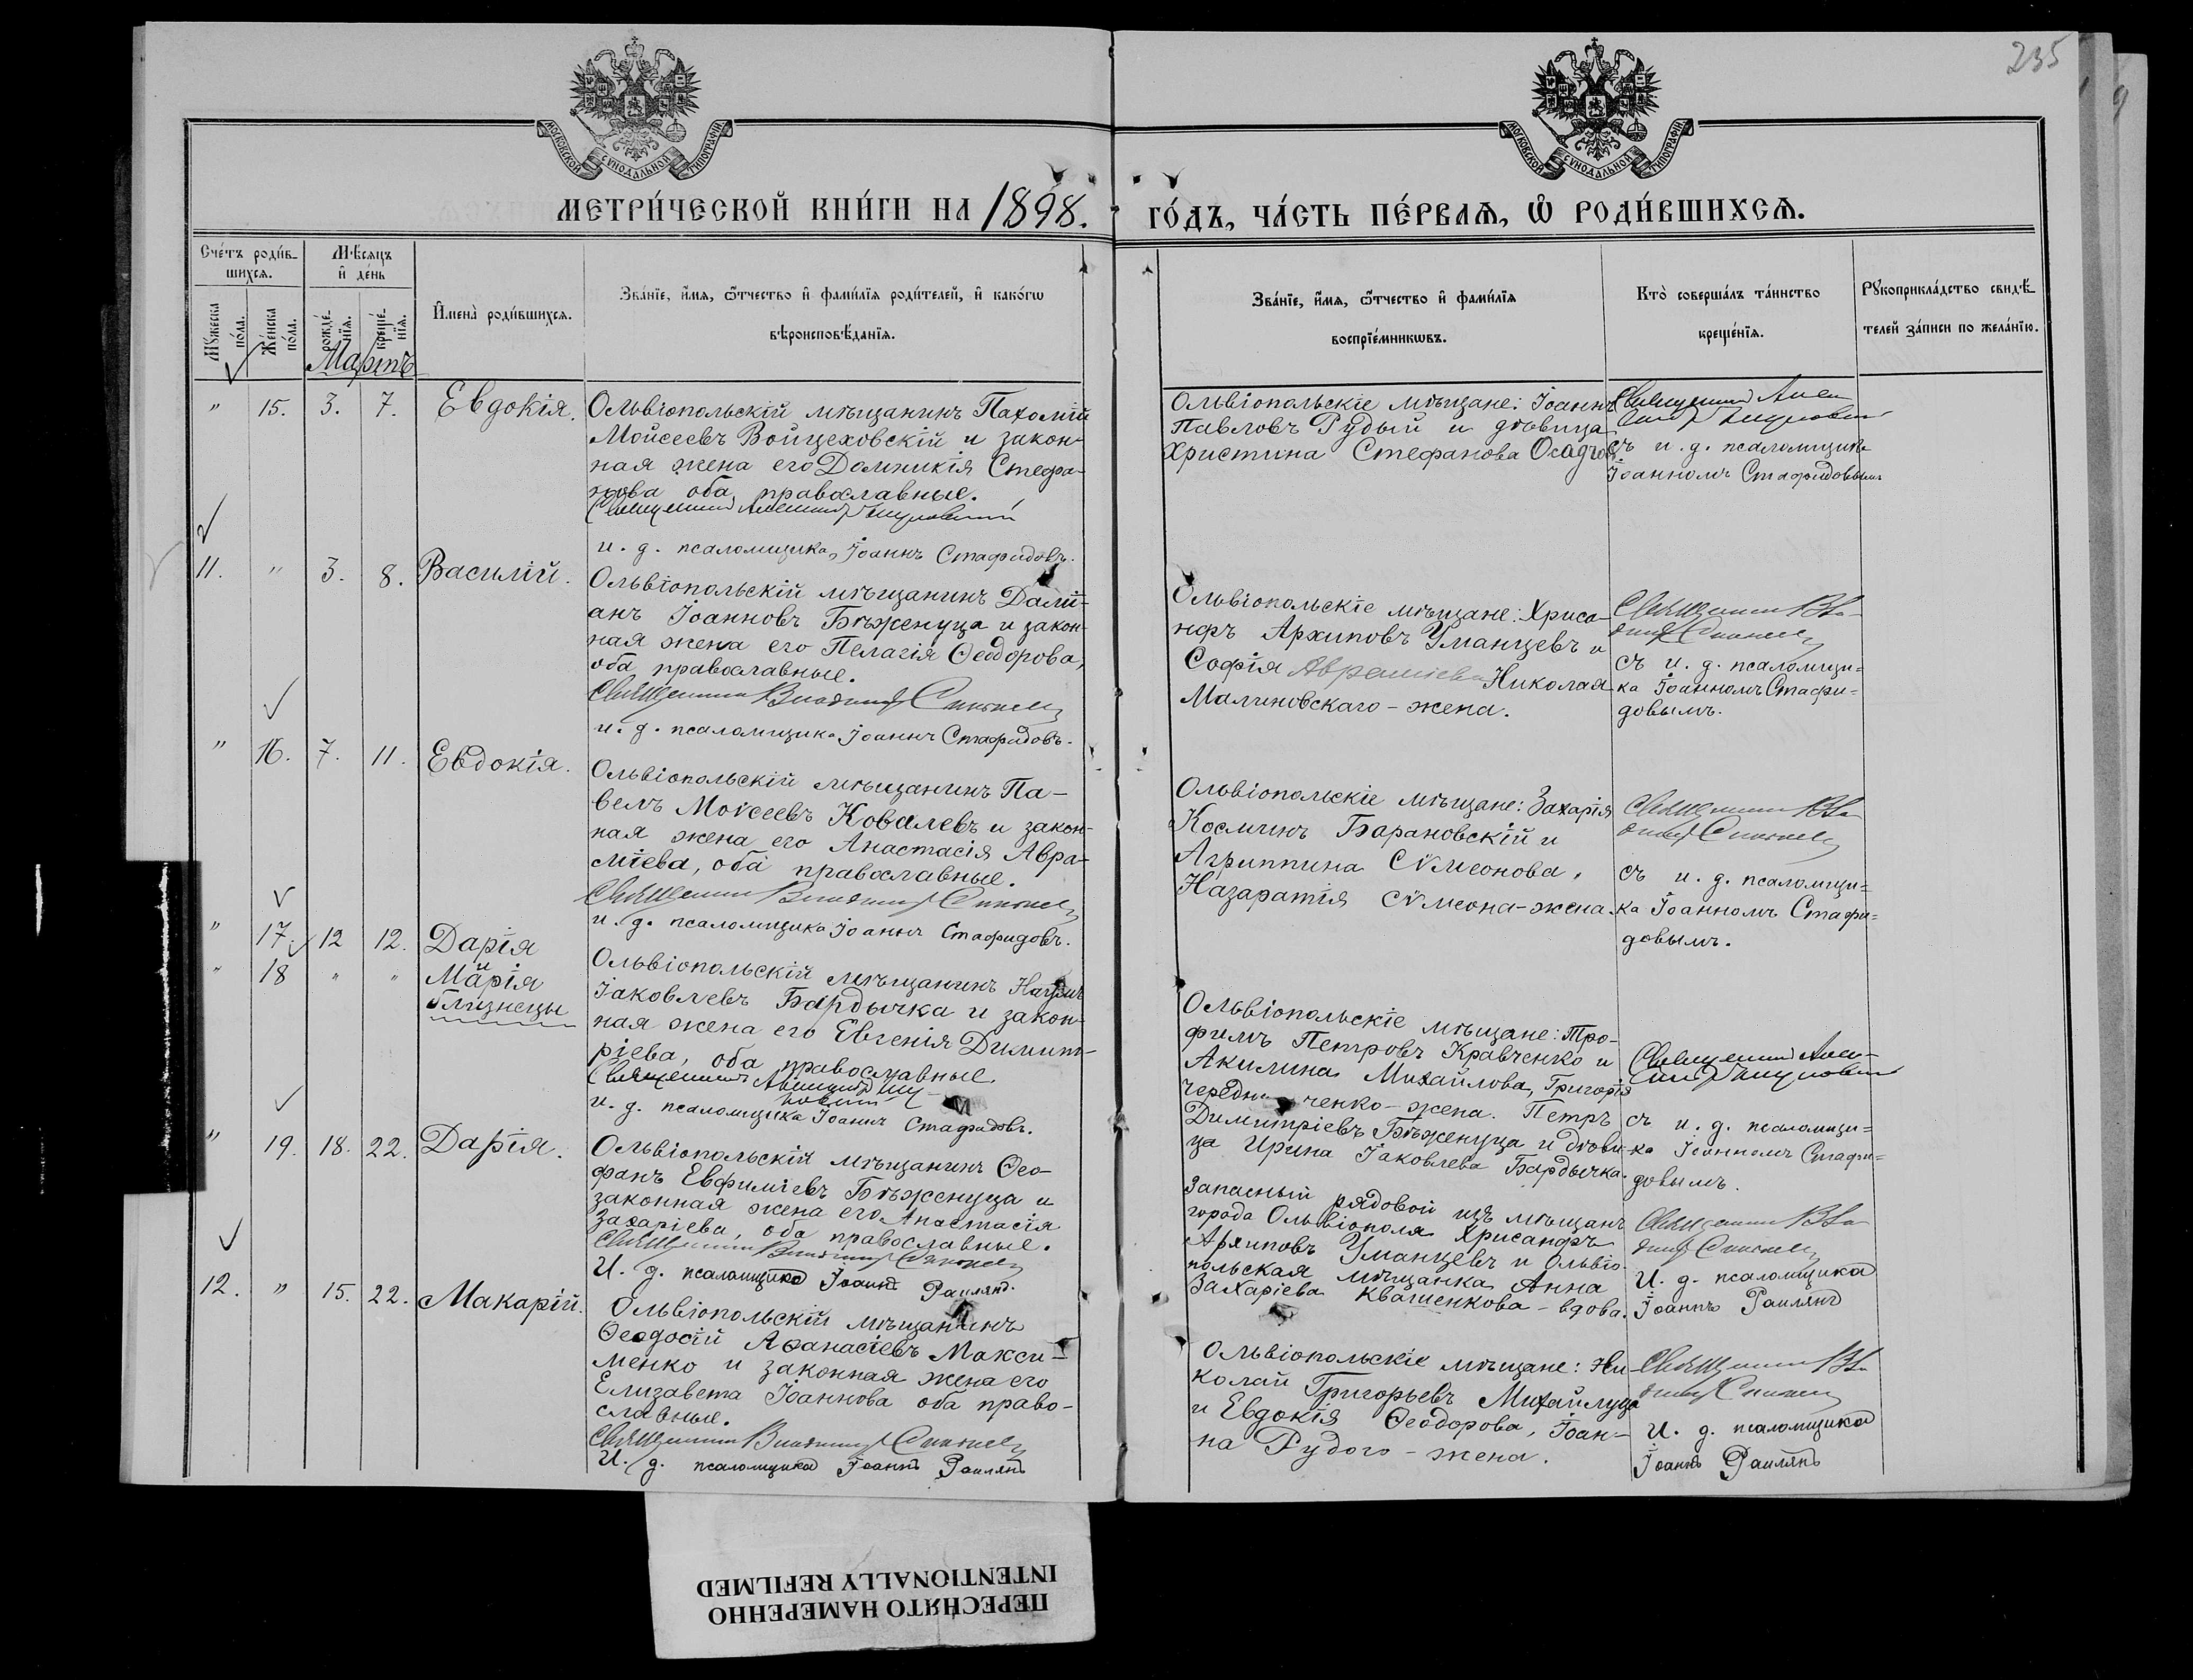 235
МОСКОВСКОЙ СѴНОДАЛЬНОЙ ТИПОГРАФІИ
МОСКОВСКОЙ СѴНОДАЛЬНОЙ ТИПОГРАФІИ
МЕТРИ́ЧЕСКОЙ КНИ́ГИ НА 1898. ГО́ДЪ, ЧА́СТЬ ПЕ́РВАѦ, Ѡ҆ РОДИ́ВШИХСѦ.
Сче́тъ роди́в-
шихся.
Мѣсяцъ
и҆ де́нь
Мꙋжеска
по́ла.
Же́нска
по́ла.
рожде́-
нїя.
креще́-
нїя.
И҆мена̀ роди́вшихся.
Зва́нїе, и҆́мя, ѻ҆́тчество и҆ фами́лїя роди́телей, и҆ како́гѡ
вѣроисповѣ́данїя.
Зва́нїе, и҆́мя, ѻ҆́тчество и҆ фами́лїя
воспрїе́мникѡвъ.
Кто̀ соверша́лъ та́инство
креще́нїя.
Рꙋкоприкла́дство свидѣ́-
телей за́писи по жела́нїю.
Мартъ
" 15. 3. 7. Евдокія.
Ольвіопольскій мѣщанинъ Пахомій
Мойсеевъ Войцеховскій и закон-
ная жена его Домникія Стефа-
нова оба православные.
Священникъ
и. д. псаломщика, Іоаннъ Стафидовъ.
Ольвіопольскіе мѣщане: Іоаннъ
Павловъ Рудый и дѣвица
Христина Стефанова
Священникъ
съ и. д. псаломщика
Іоанномъ Стафидовымъ
11. " 3. 8. Василій.
Ольвіопольскій мѣщанинъ Дамі-
анъ Іоанновъ Бѣженуца и закон-
ная жена его Пелагія Ѳеодорова,
оба православные.
Священникъ Владимір
и. д. псаломщика Іоаннъ Стафидовъ.
Ольвіопольскіе мѣщане: Хриса-
нфъ Архиповъ Уманцевъ и
Софія Авраміева Николая
Малиновскаго - жена.
Священникъ Вла-
съ и. д. псаломщи=
ка Іоанномъ Стафи=
довымъ.
" 16. 7. 11. Евдокія.
Ольвіопольскій мѣщанинъ Па-
велъ Моѵсеевъ Ковалевъ и закон-
ная жена его Анастасія Авра-
міева, оба православные.
Священникъ Владимір
и. д. псаломщика Іоаннъ Стафидовъ.
Ольвіопольскіе мѣщане: Захарія
Косминъ Барановскій и
Агриппина Сѵмеонова,
Назаратія Сѵмеона-жена.
Священникъ Вла-
съ и. д. псаломщи=
ка Іоанномъ Стафи=
довымъ.
" 17 12 12. Дарія
и
" 18 " " Марія
близнецы
Ольвіопольскій мѣщанинъ Наумъ
Іаковлевъ Бардычка и закон-
ная жена его Евгенія Димит-
ріева, оба православные.
Священникъ
и. д. псаломщика Іоаннъ Стафидовъ.
Ольвіопольскіе мѣщане: Тро-
фимъ Петровъ Кравченко и
Акилина Михайлова, Григорія
ченко-жена. Петръ
Димитріевъ Бѣженуца и дѣви-
ца Ирина Іаковлева Бардычка.
Священникъ
съ и. д. псаломщи-
ка Іоанномъ Стафи=
довымъ.
" 19. 18. 22. Дарія.
Ольвіопольскій мѣщанинъ Ѳео-
фанъ Евфиміевъ Бѣженуца и
законная жена его Анастасія
Захаріева, оба православные.
Священникъ Владимір
И. д. псаломщика Іоаннъ Раилянъ.
Запасный рядовой изъ мѣщанъ
города Ольвіополя Хрисанфъ
Архиповъ Уманцевъ и Ольвіо-
польская мѣщанка Анна
Захаріева Квашенкова - вдова.
Священникъ Вла-
И. д. псаломщика
Іоаннъ Раилянъ
12. " 15. 22. Макарій.
Ольвіопольскій мѣщанинъ
Ѳеодосій Аѳанасіевъ Макси-
менко и законная жена его
Елизавета Іоаннова оба право-
славные.
Священникъ Владимір
И. д. псаломщика Іоаннъ Раилянъ
Ольвіопольскіе мѣщане: Ни-
колай Григорьевъ Михайлуца
и Евдокія Ѳеодорова, Іоан-
на Рудого - жена.
Священникъ Вла-
И. д. псаломщика
Іоаннъ Раилянъ
ПЕРЕСНЯТО НАМЕРЕННО
INTENTIONALLY REFILMED